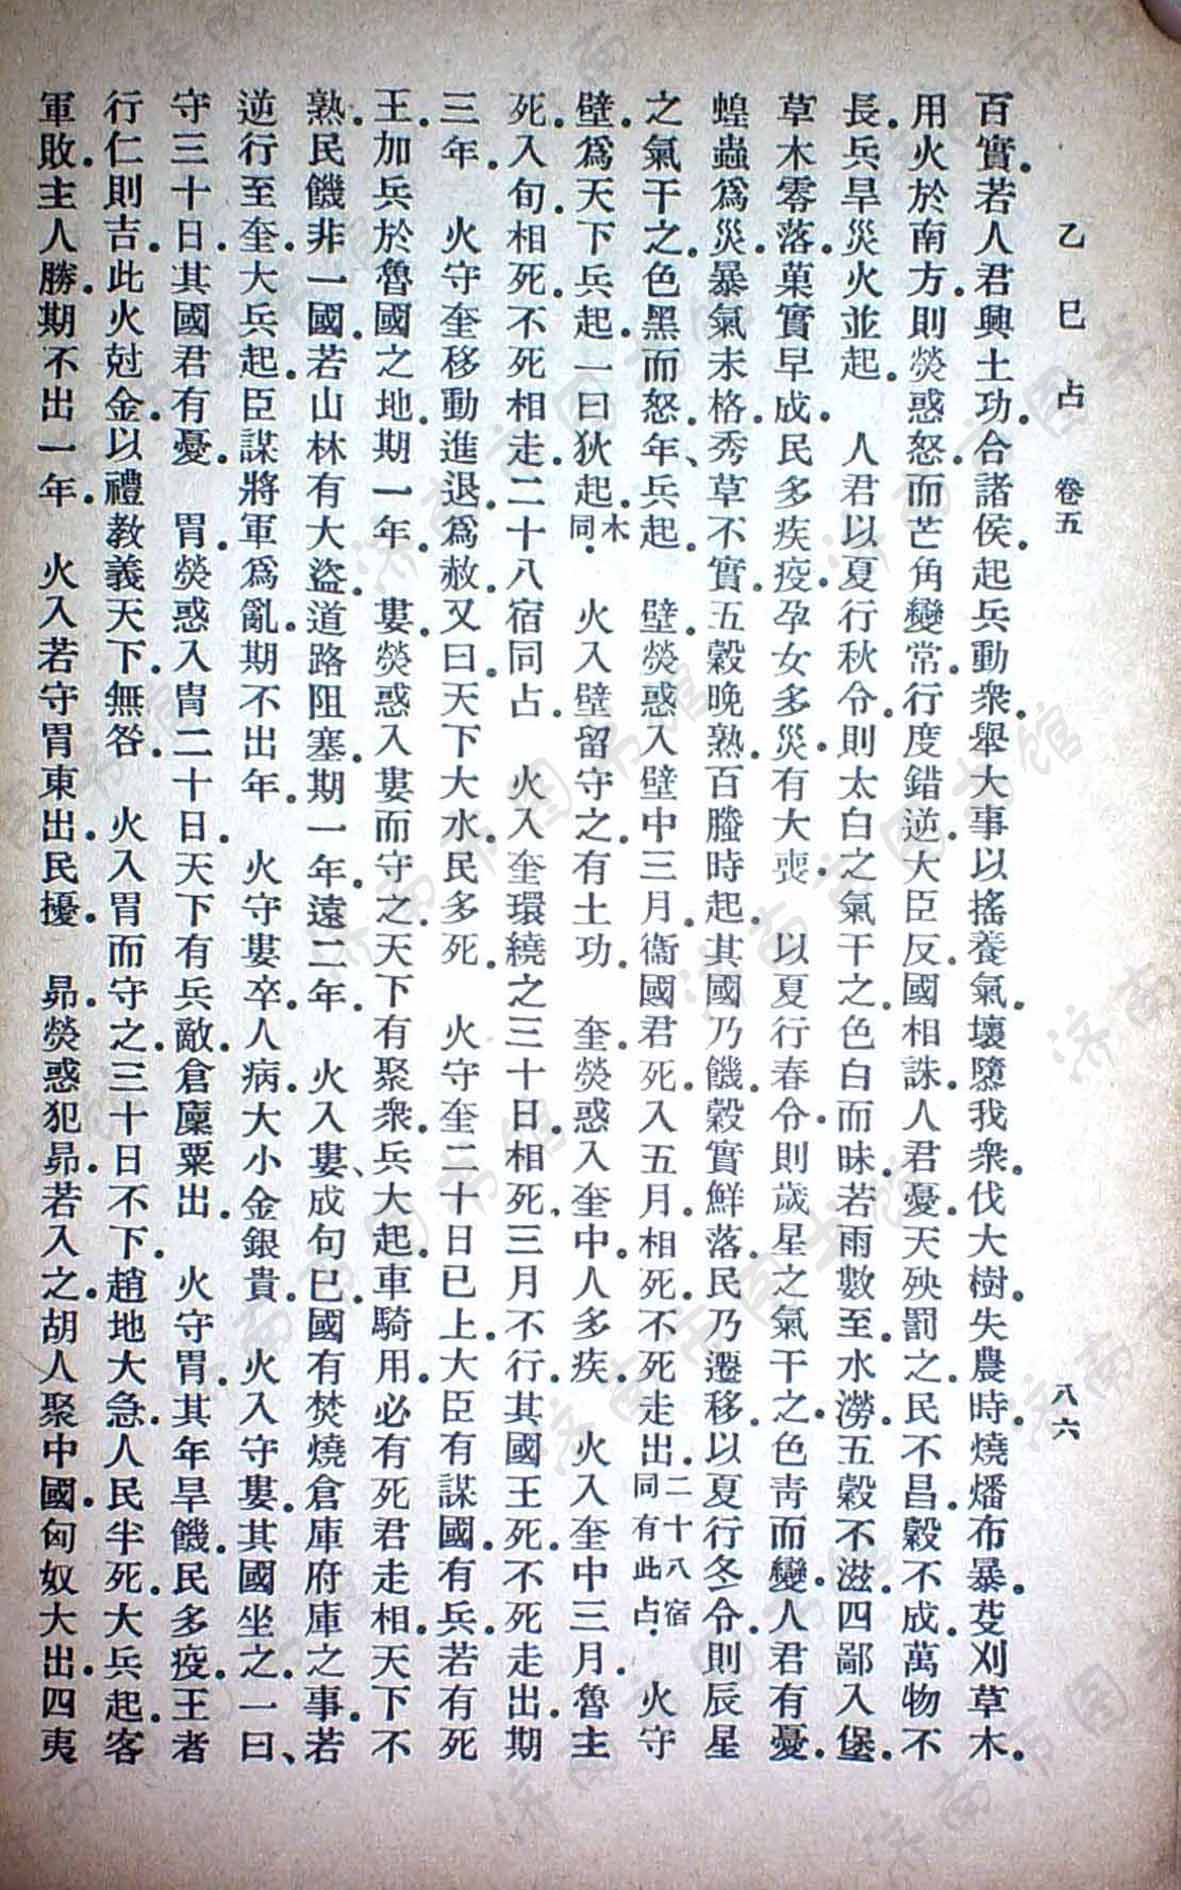 乙巳占 卷五 八六
百實。若人君興土功。合諸侯。起兵動衆。舉大事以搖養氣。壞墮我衆。伐大樹。失農時。燒燔布暴。芟刈草木。
用火於南方。則熒惑怒。而芒角變常。行度錯逆。大臣反國相誅。人君憂。天殃罰之。民不昌。穀不成。萬物不
長。兵旱災火並起。 人君以夏行秋令。則太白之氣干之。色白而昧。若雨數至。水澇。五穀不滋。四鄙入堡。
草木零落。菓實早成。民多疾疫。孕女多災。有大喪。 以夏行春令。則歲星之氣干之。色靑而變。人君有憂。
蝗蟲爲災。暴氣未格。秀草不實。五穀晚熟。百螣時起。其國乃饑。穀實鮮落。民乃遷移。以夏行冬令。則辰星
之氣干之。色黑而怒。年、兵起。 壁。熒惑入壁中三月。衞國君死。入五月。相死。不死走出。二十八宿同有此占。 火守
壁。爲天下兵起。一曰狄起。木同。 火入壁留守之。有土功。 奎。熒惑入奎中。人多疾。 火入奎中三月。魯主
死。入旬。相死。不死相走。二十八宿同占。 火入奎環繞之三十日。相死、三月不行。其國王死。不死走出。期
三年。 火守奎移動進退。爲赦。又曰。天下大水。民多死。 火守奎二十日已上。大臣有謀。國有兵。若有死
王。加兵於魯國之地。期一年。 婁。熒惑入婁而守之。天下有聚衆。兵大起。車騎用。必有死君走相。天下不
熟。民饑非一國。若山林有大盜。道路阻塞。期一年。遠二年。 火入婁、成句巳。國有焚燒倉庫府庫之事。若
逆行至奎。大兵起。臣謀將軍爲亂。期不出年。 火守婁。卒人病。大小金銀貴。 火入守婁。其國坐之。一曰、
守三十日。其國君有憂。 胃。熒惑入胄二十日。天下有兵。敵倉廩粟出。 火守胃。其年旱饑。民多疫。王者
行仁則吉。此火尅金。以禮教義天下。無咎。 火入胃而守之。三十日不下。趙地大急。人民半死。大兵起。客
軍敗。主人勝。期不出一年。 火入若守胃東出。民擾。 昴。熒惑犯昴。若入之。胡人聚中國。匈奴大出。四夷